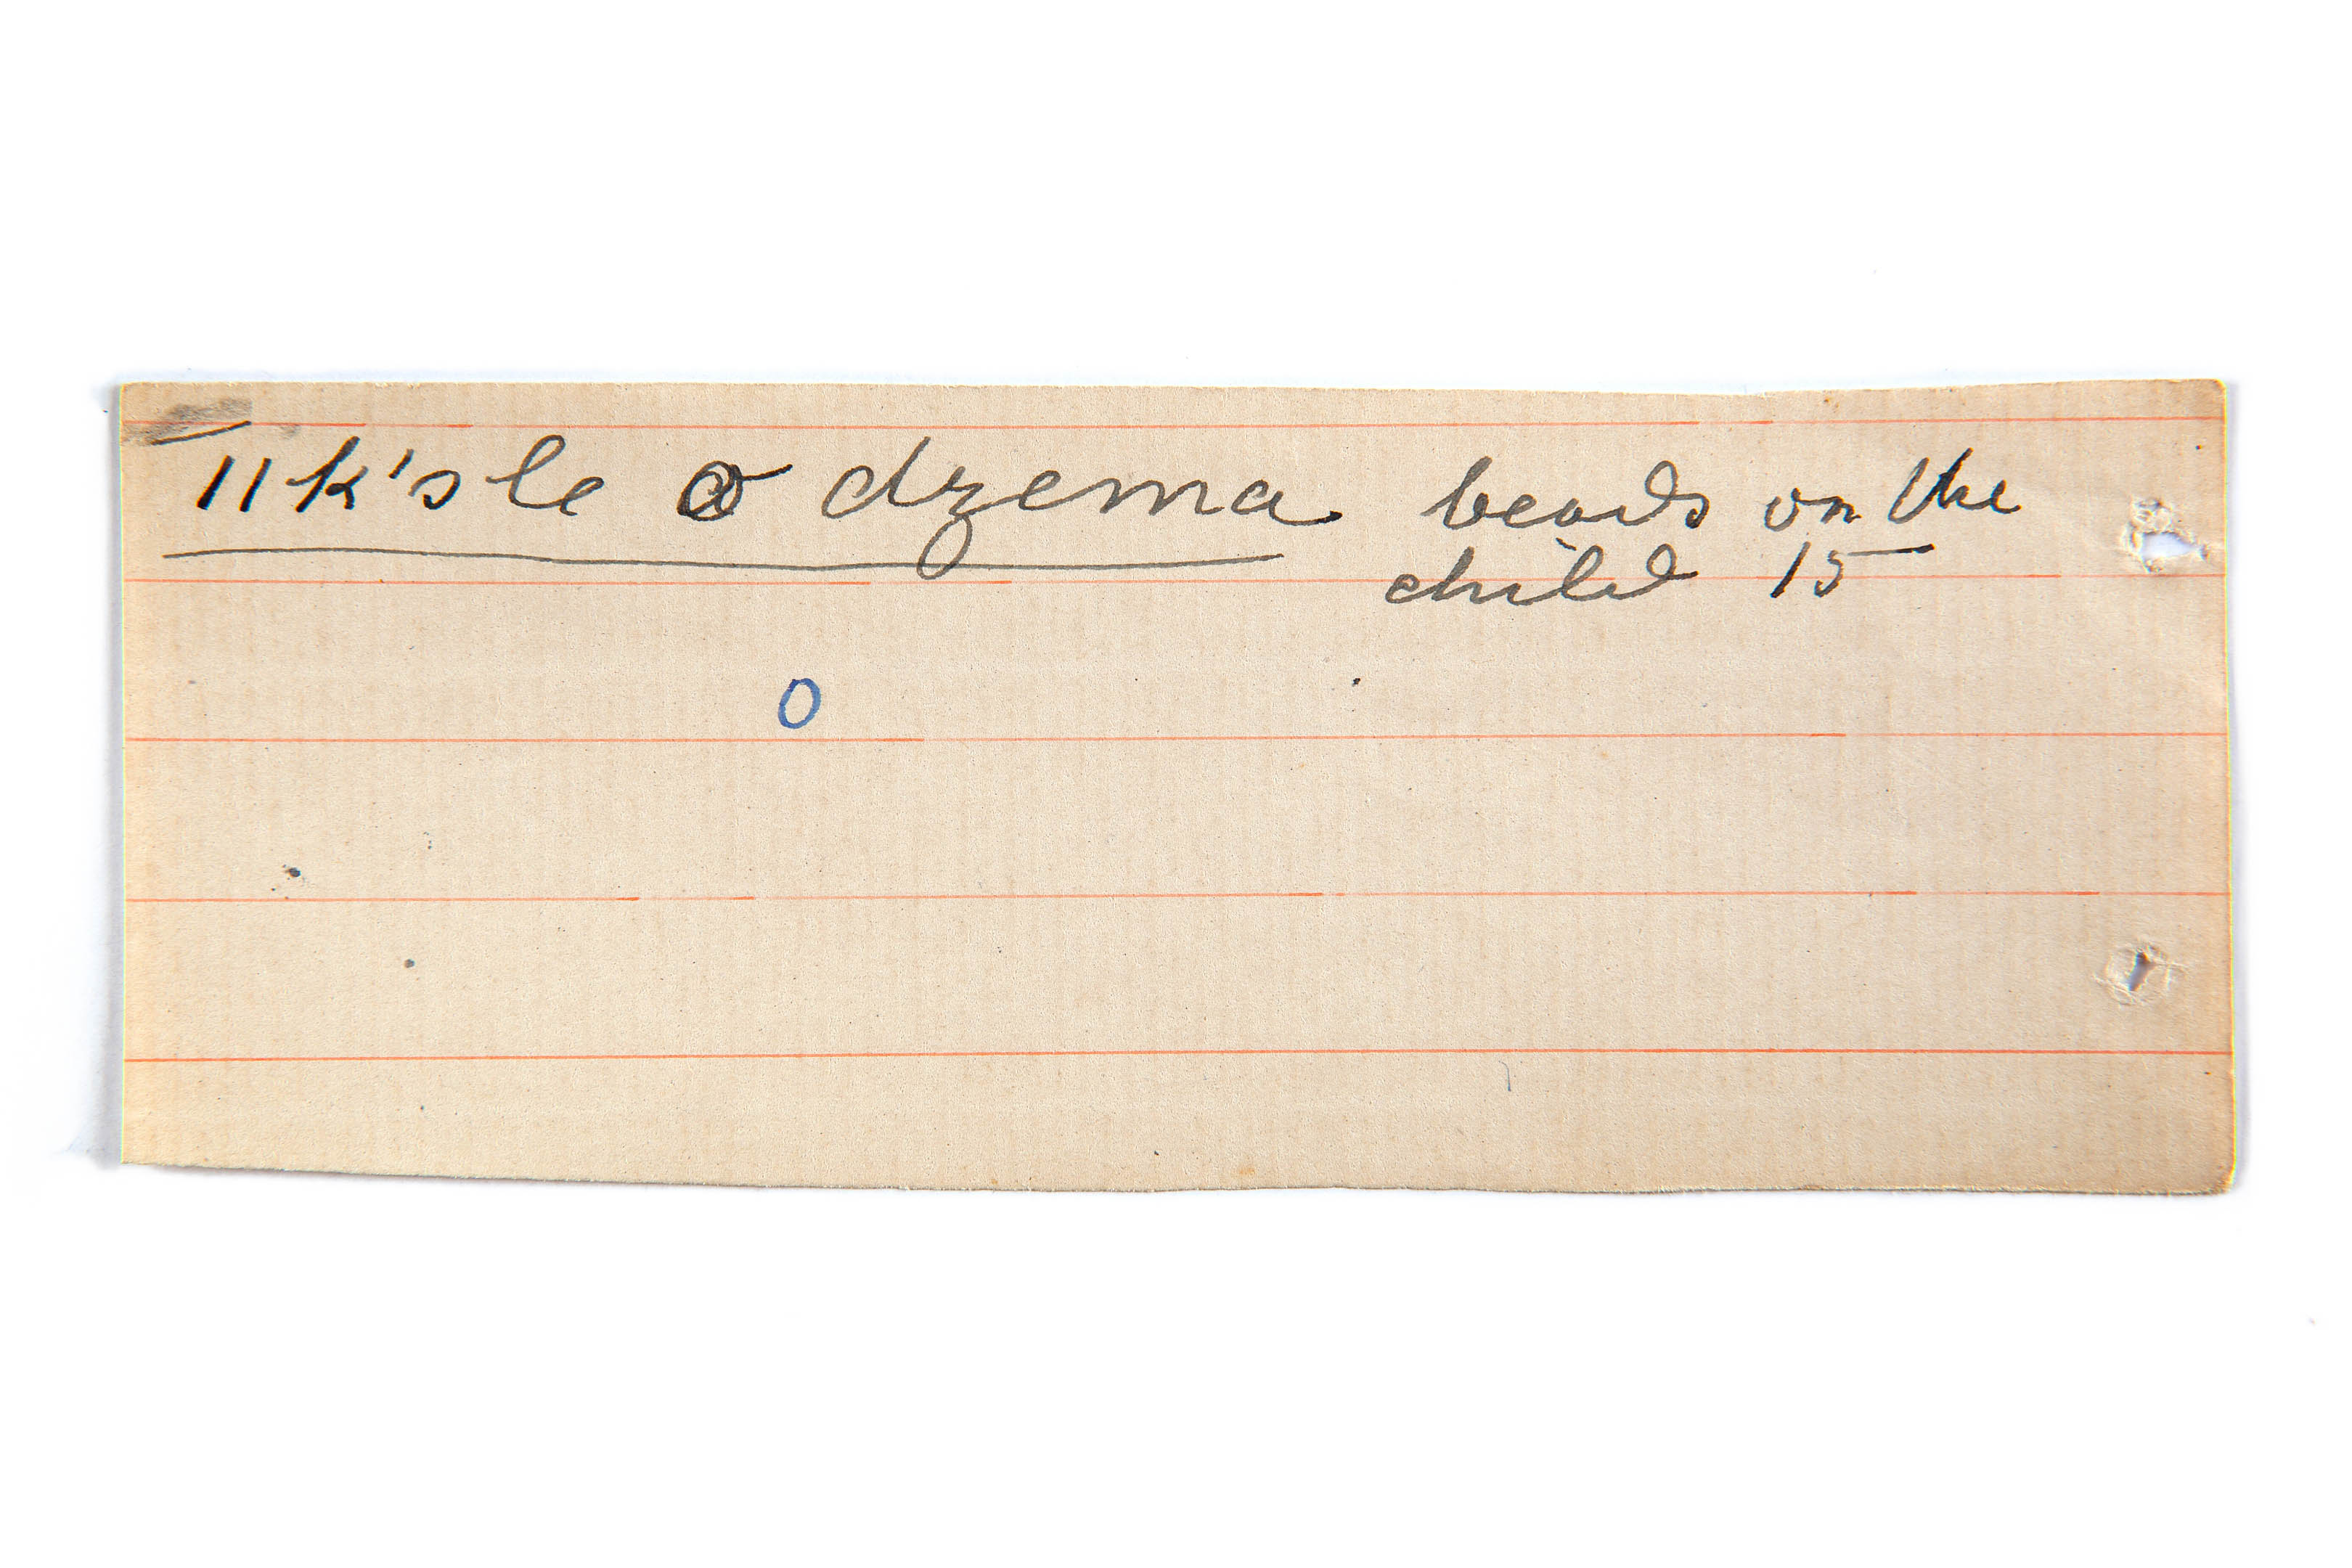 11k's le o dzema beads on the
child 15
O